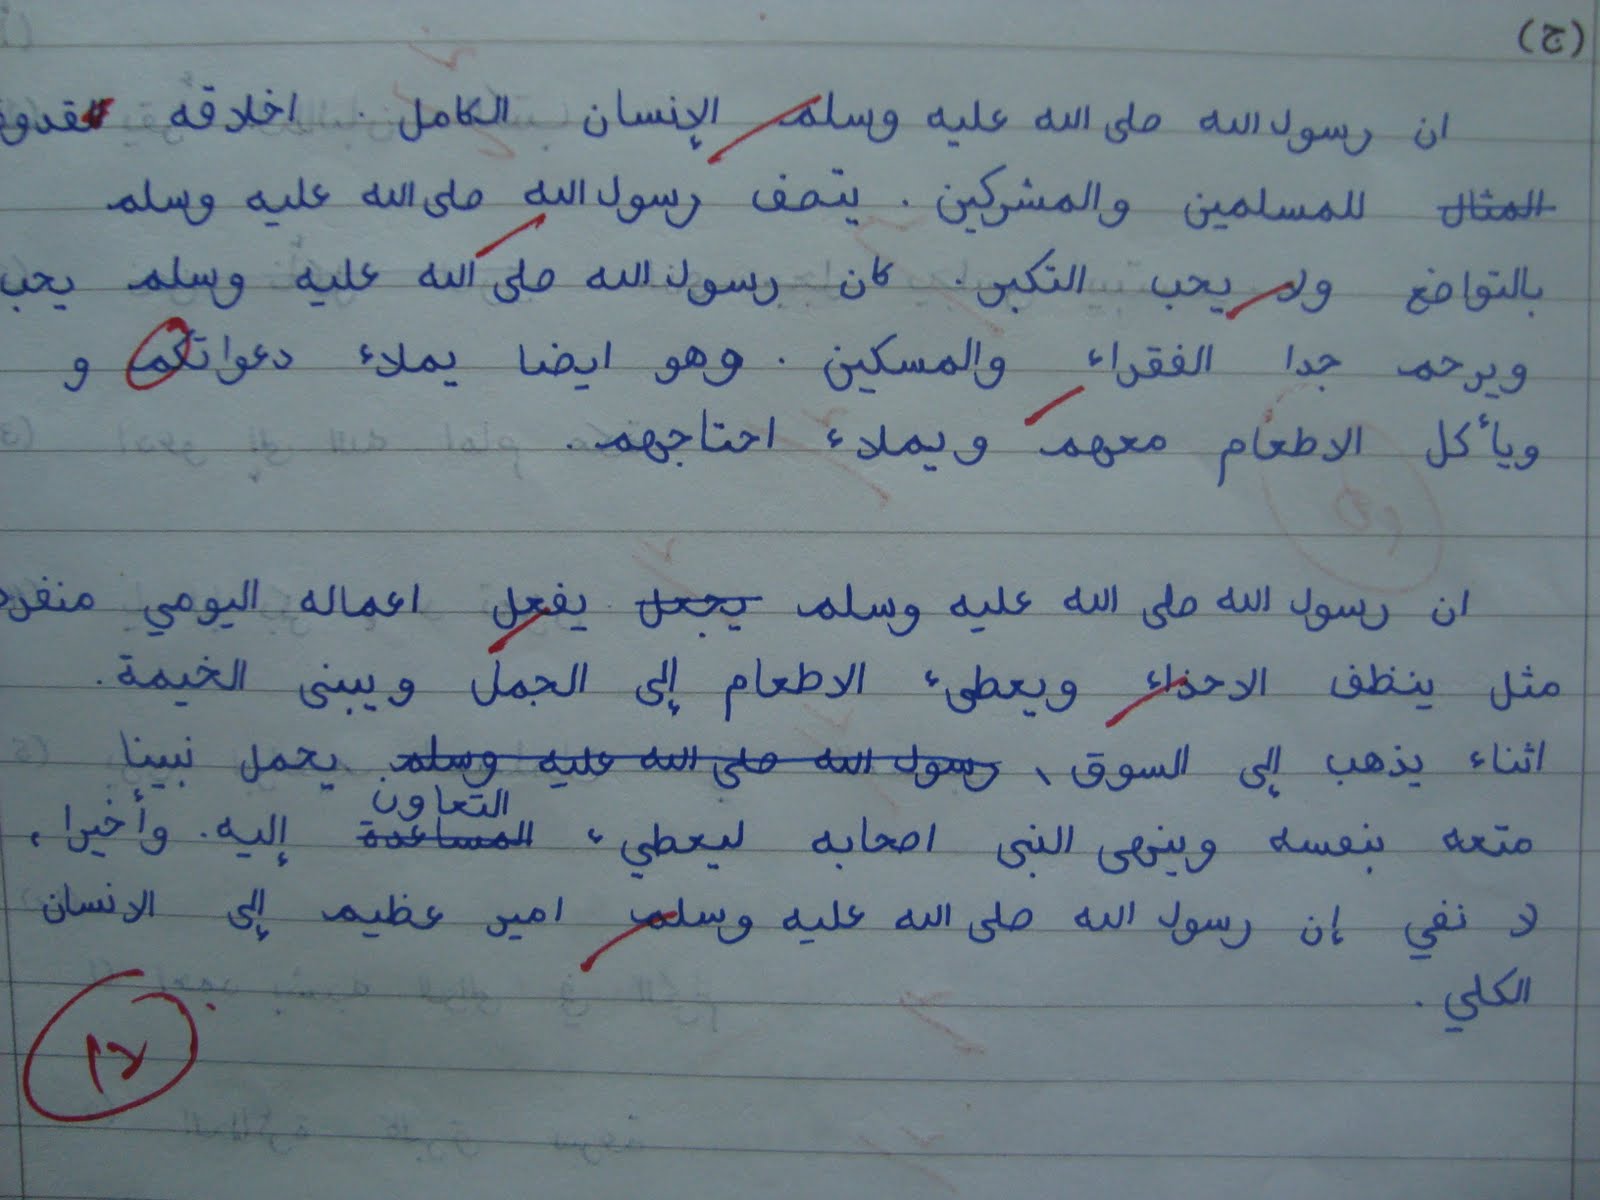 (ج)
ان رسول الله صلى الله عليه وسلم الإنسان الكامل. اخلاقه لقدوة
المثال للمسلمين والمشركين. يتصف رسول الله صلى الله عليه وسلم
بالتواضع ولا يحب التكبر. كان رسول الله صلى الله عليه وسلم يحب
ويرحم جدا الفقراء والمسكين. وهو ايضا يملاء دعواتكم و
ويأكل الاطعام معهم ويملاء احتاجهم.
ان رسول الله صلى الله عليه وسلم يجعل يفعل اعماله اليومي منفرد
مثل ينظف الاحذاء ويعطىء الاطعام إلى الجمل ويبنى الخيمة.
اثناء يذهب إلى السوق، رسول الله صلى الله عليه وسلم. يحمل نبينا
التعاون
متعه بنفسه وينهى النبى اصحابه ليعطيء المساعدة إليه. وأخيرا،
لا نفي إن رسول الله صلى الله عليه وسلم امير عظيم إلى الانسان
الكلي.